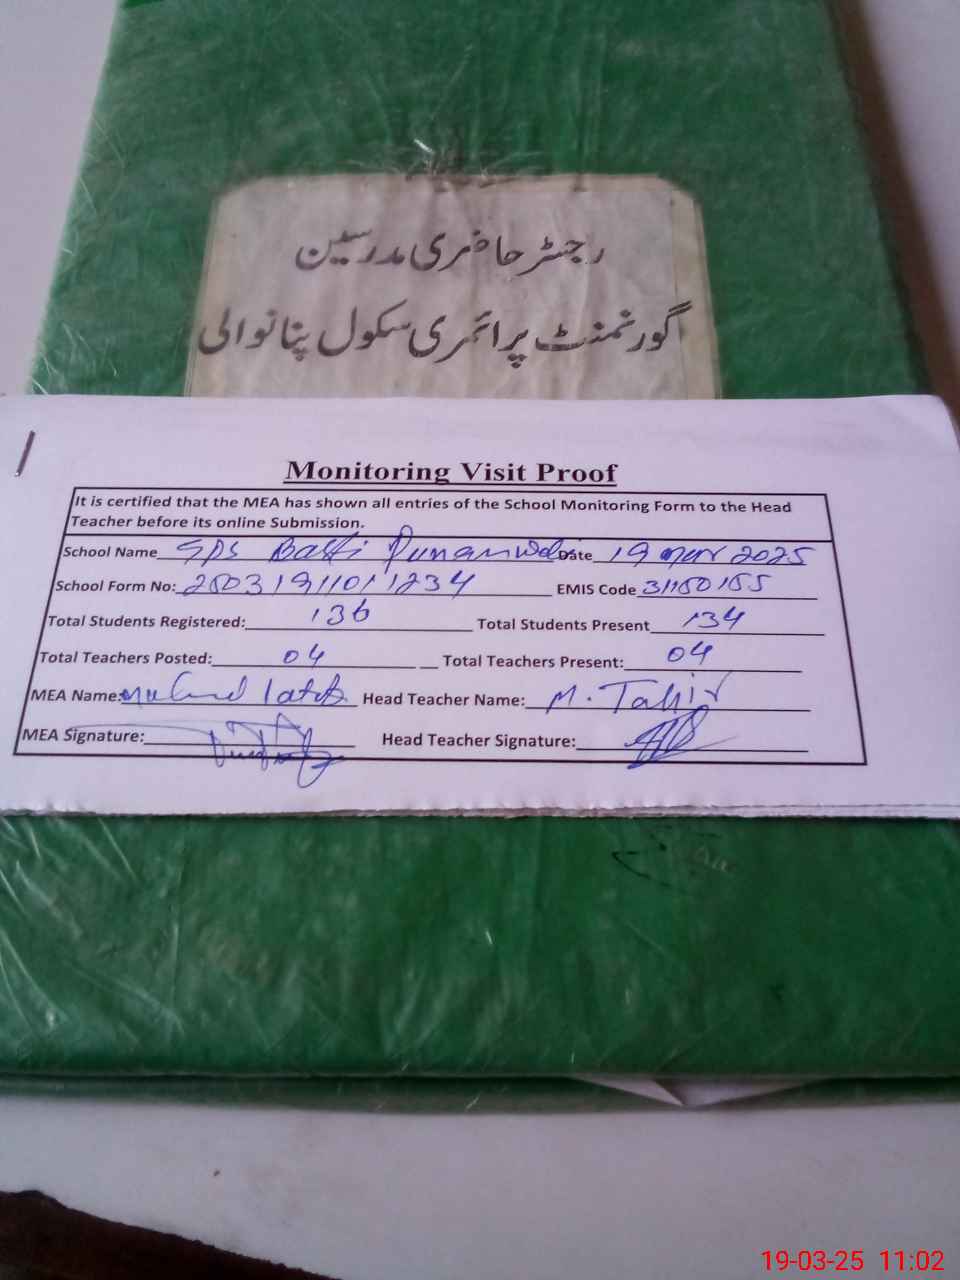 رجسٹر حاضری مدرسین
گورنمنٹ پرائمری سکول پنانوالی
Monitoring Visit Proof
It is certified that the MEA has shown all entries of the School Monitoring Form to the Head
Teacher before its online Submission.
School Name GPS Basti Punanwali Date 19 Mar 2025
School Form No: 25031911011234 EMIS Code 31150155
Total Students Registered: 136 Total Students Present 134
Total Teachers Posted: 04 Total Teachers Present: 04
MEA Name: Head Teacher Name: M. Tahir
MEA Signature: Head Teacher Signature:
19-03-25 11:02